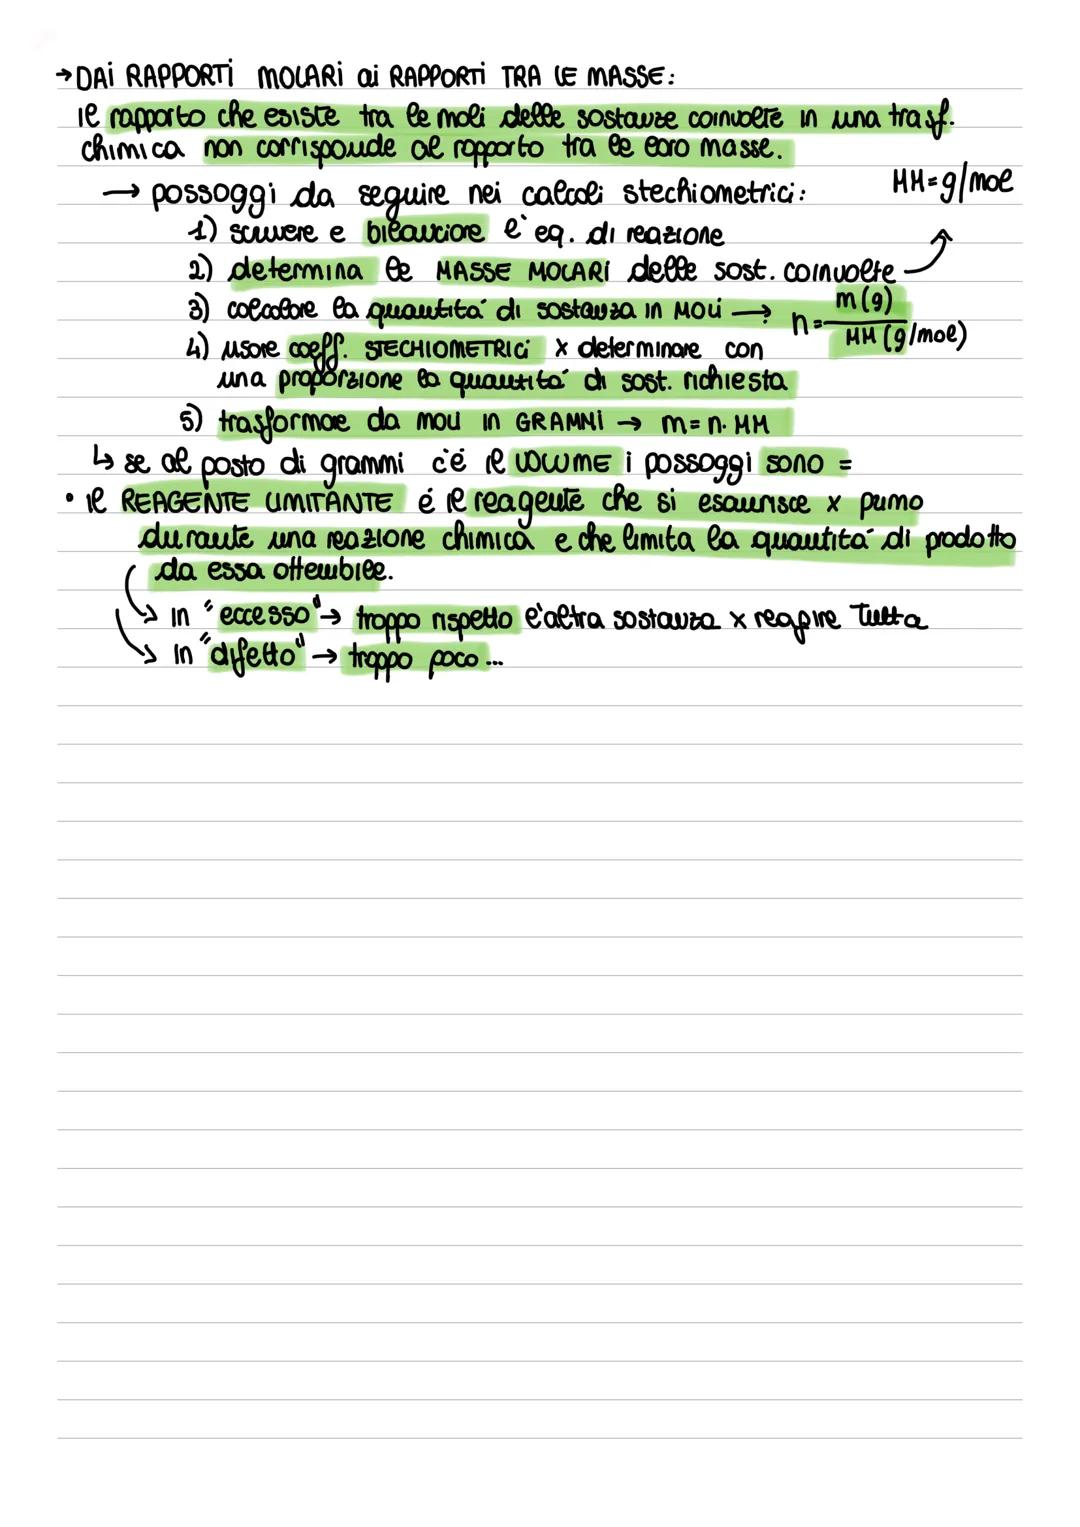 → DAi RAPPORTi MOLARi ai RAPPORTi TRA LE MASSE:
il rapporto che esiste tra le moli delle sostanze coinvolte in una trasf.
chimica non corrisponde al rapporto tra le loro masse.
→ passaggi da seguire nei calcoli stechiometrici: MM=g/mol
1) scrivere e bilanciare l'eq. di reazione
2) determina le MASSE MOLARi delle sost. coinvolte
3) calcolare la quantitá di sostanza in MOLi → n= m(g) / MM (g/mol)
4) usare coeff. STECHIOMETRICi x determinare con
una proporzione la quantitá di sost. richiesta
5) trasformare da moli in GRAMMi → m= n. MM
↳ se al posto di grammi c'é il VOLUME i passaggi sono =
• il REAGENTE LIMITANTE é il reagente che si esaurisce x primo
durante una reazione chimica e che limita la quantitá di prodotto
da essa ottenibile.
↳ in "eccesso" → troppo rispetto l'altra sostanza x reagire tutta
↳ in "difetto" → troppo poco...